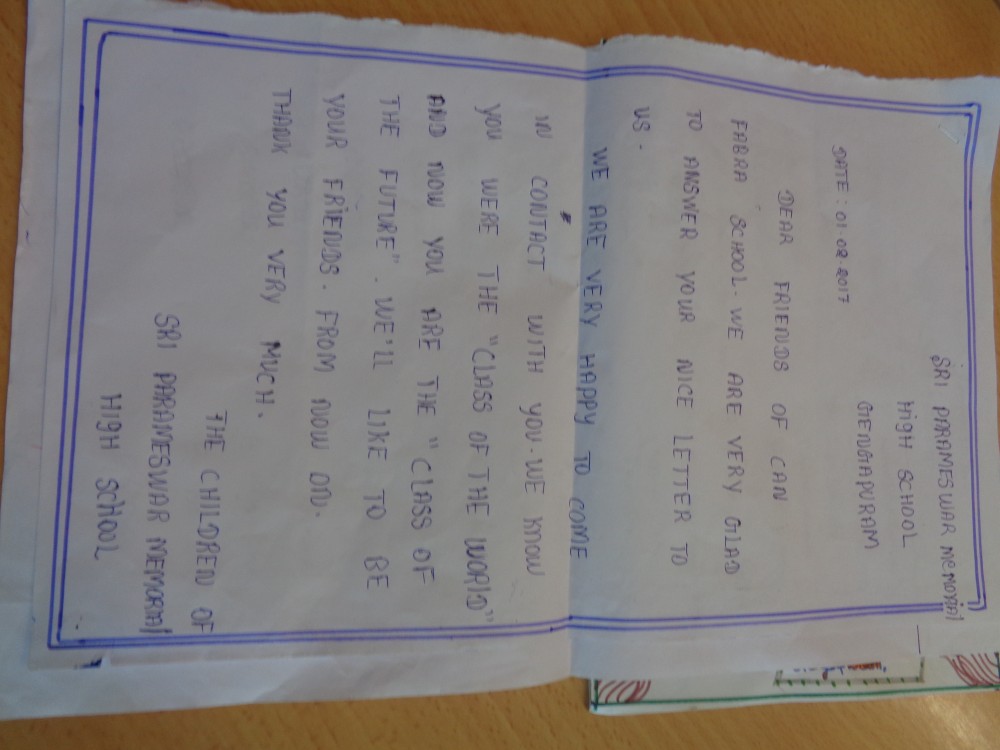 SRI PARAMESWAR MEMORIAL
HIGH SCHOOL
GENGAPURAM
DATE : 01-02-2017
DEAR FRIENDS OF CAN
FABRA SCHOOL. WE ARE VERY GLAD
TO ANSWER YOUR NICE LETTER TO
US.
WE ARE VERY HAPPY TO COME
IN CONTACT WITH YOU. WE KNOW
YOU WERE THE "CLASS OF THE WORLD"
AND NOW YOU ARE THE "CLASS OF
THE FUTURE". WE'LL LIKE TO BE
YOUR FRIENDS. FROM NOW ON.
THANK YOU VERY MUCH.
THE CHILDREN OF
SRI PARAMESWAR MEMORIAL
HIGH SCHOOL